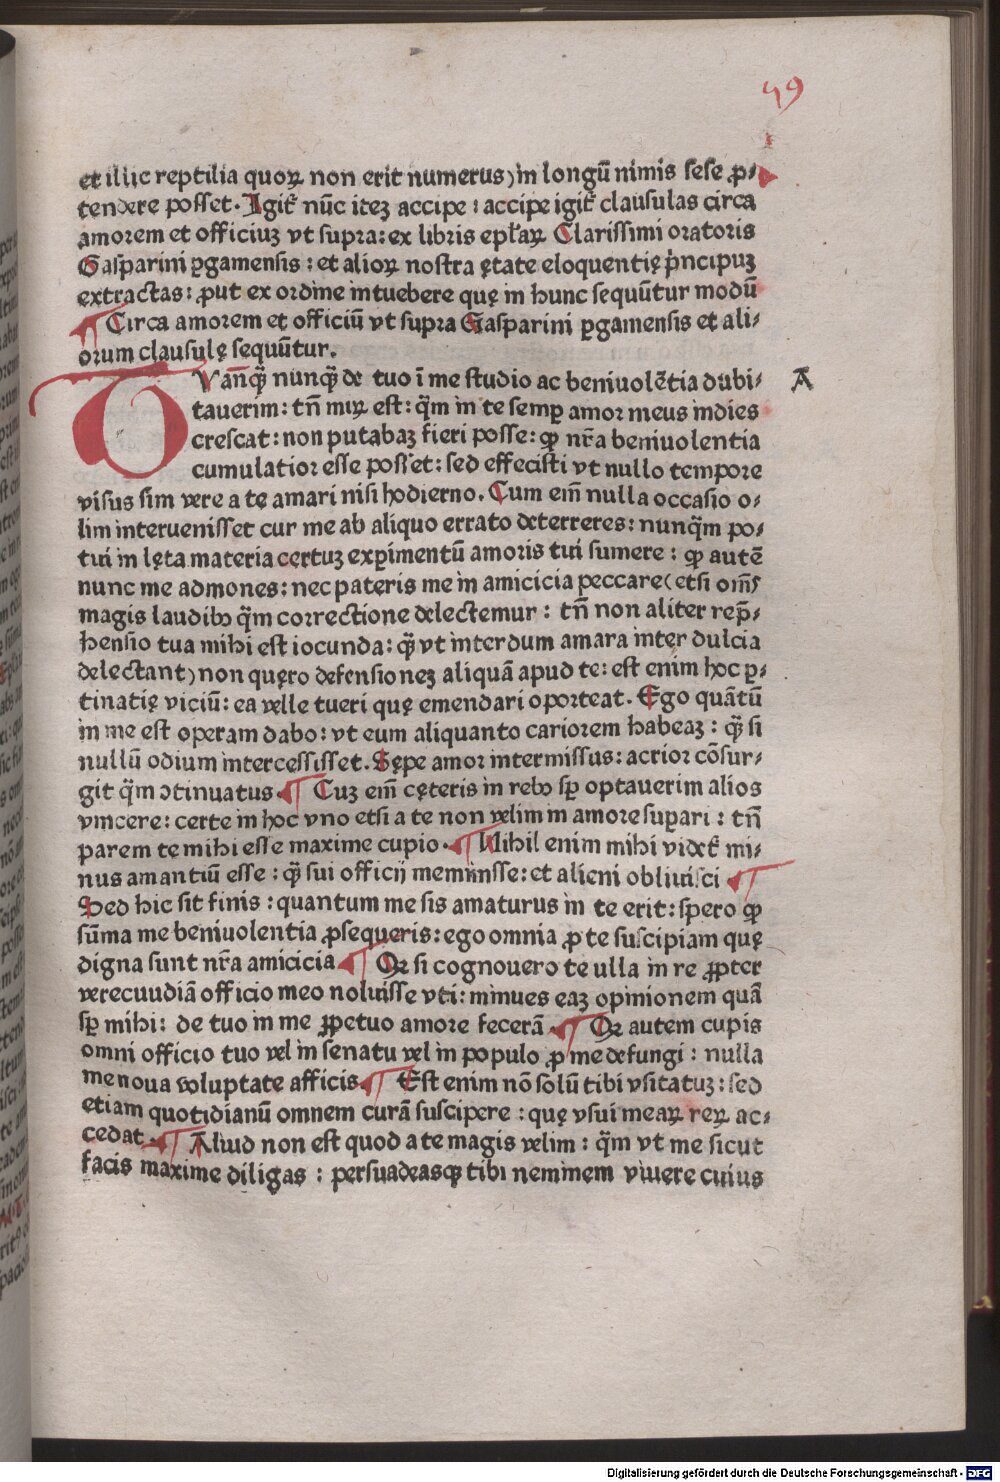 49
et illic reptilia quoꝝ non erit numerus) in longū nimis sese ꝓ⸗
tendere posset. Igit̃ nūc iteꝫ accipe : accipe igit̃ clausulas circa
amorem et officiuꝫ vt supra: ex libris ep̄laꝝ Clarissimi oratoris
Gasparini ꝑgamensis : et alioꝝ nostra ętate eloquentię p̄ncipuꝫ
extractas: ꝓut ex ordine intuebere quę in hunc sequūtur modū
¶ Circa amorem et officiū vt supra Gasparini ꝑgamensis et ali⸗
orum clausulę sequūtur.
A
Vanq̄ꝫ nunq̄ꝫ de tuo ī me studio ac beniuolētia dubi⸗
tauerim: tn̄ miꝝ est: q̄m in te semꝑ amor meus indies
crescat: non putabaꝫ fieri posse: ꝙ nr̄a beniuolentia
cumulatior esse posset: sed effecisti vt nullo tempore
visus sim vere a te amari nisi hodierno. Cum em̄ nulla occasio o⸗
lim interuenisset cur me ab aliquo errato deterreres: nunq̄m po⸗
tui in lęta materia certuꝫ exꝑimentū amoris tui sumere : ꝙ autē
nunc me admones: nec pateris me in amicicia peccare (etsi om̄s
magis laudibꝫ q̄m correctione delectemur : tn̄ non aliter rep̄⸗
hensio tua mihi est iocunda: q̄ꝫ vt interdum amara inter dulcia
delectant) non quęro defensioneꝫ aliquā apud te: est enim hoc ꝑ⸗
tinatię viciū: ea velle tueri quę emendari oporteat. Ego quātū
in me est operam dabo: vt eum aliquanto cariorem habeaꝫ : q̄ꝫ si
nullū odium intercessisset. Sępe amor intermissus: acrior cōsur⸗
git q̄m ↄtinuatus. ¶ Cuꝫ em̄ cęteris in rebꝫ sꝑ optauerim alios
vincere: certe in hoc vno etsi a te non velim in amore suꝑari : tn̄
parem te mihi esse maxime cupio. ¶ Nihil enim mihi videt̃ mi⸗
nus amantiū esse : q̄ꝫ sui officij meminsse: et alieni obliuisci ¶
Sed hic sit finis : quantum me sis amaturus in te erit: spero ꝙ
sūma me beniuolentia ꝓsequeris: ego omnia ꝓ te suscipiam quę
digna sunt nr̄a amicicia ¶ Qꝫ si cognouero te ulla in re ꝓpter
verecuudiā officio meo noluisse vti: minues eaꝫ opinionem quā
sꝑ mihi: de tuo in me ꝓpetuo amore fecerā ¶ Qꝫ autem cupis
omni officio tuo vel in senatu vel in populo ꝓ me defungi : nulla
me noua voluptate afficis. ¶ Est enim nō solū tibi vsitatuꝫ: sed
etiam quotidianū omnem curā suscipere : quę vsui meaꝝ reꝝ ac⸗
cedat. ¶ Aliud non est quod a te magis velim : q̄m vt me sicut
facis maxime diligas : persuadeasqꝫ tibi neminem viuere cuius
Digitalisierung gefördert durch die Deutsche Forschungsgemeinschaft - DFG